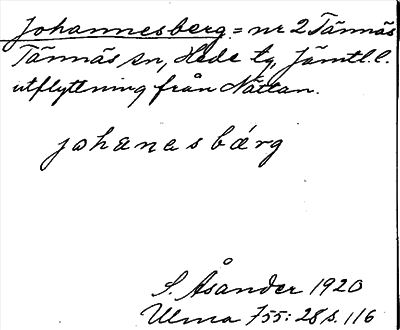 Johannesberg = nr 2 Tännäs
Tännäs sn, Hede tg, Jämtl. l.
utflyttning från Nättan.
johanasbärg
S. Åsander 1920
Ulma 755: 28 s. 116